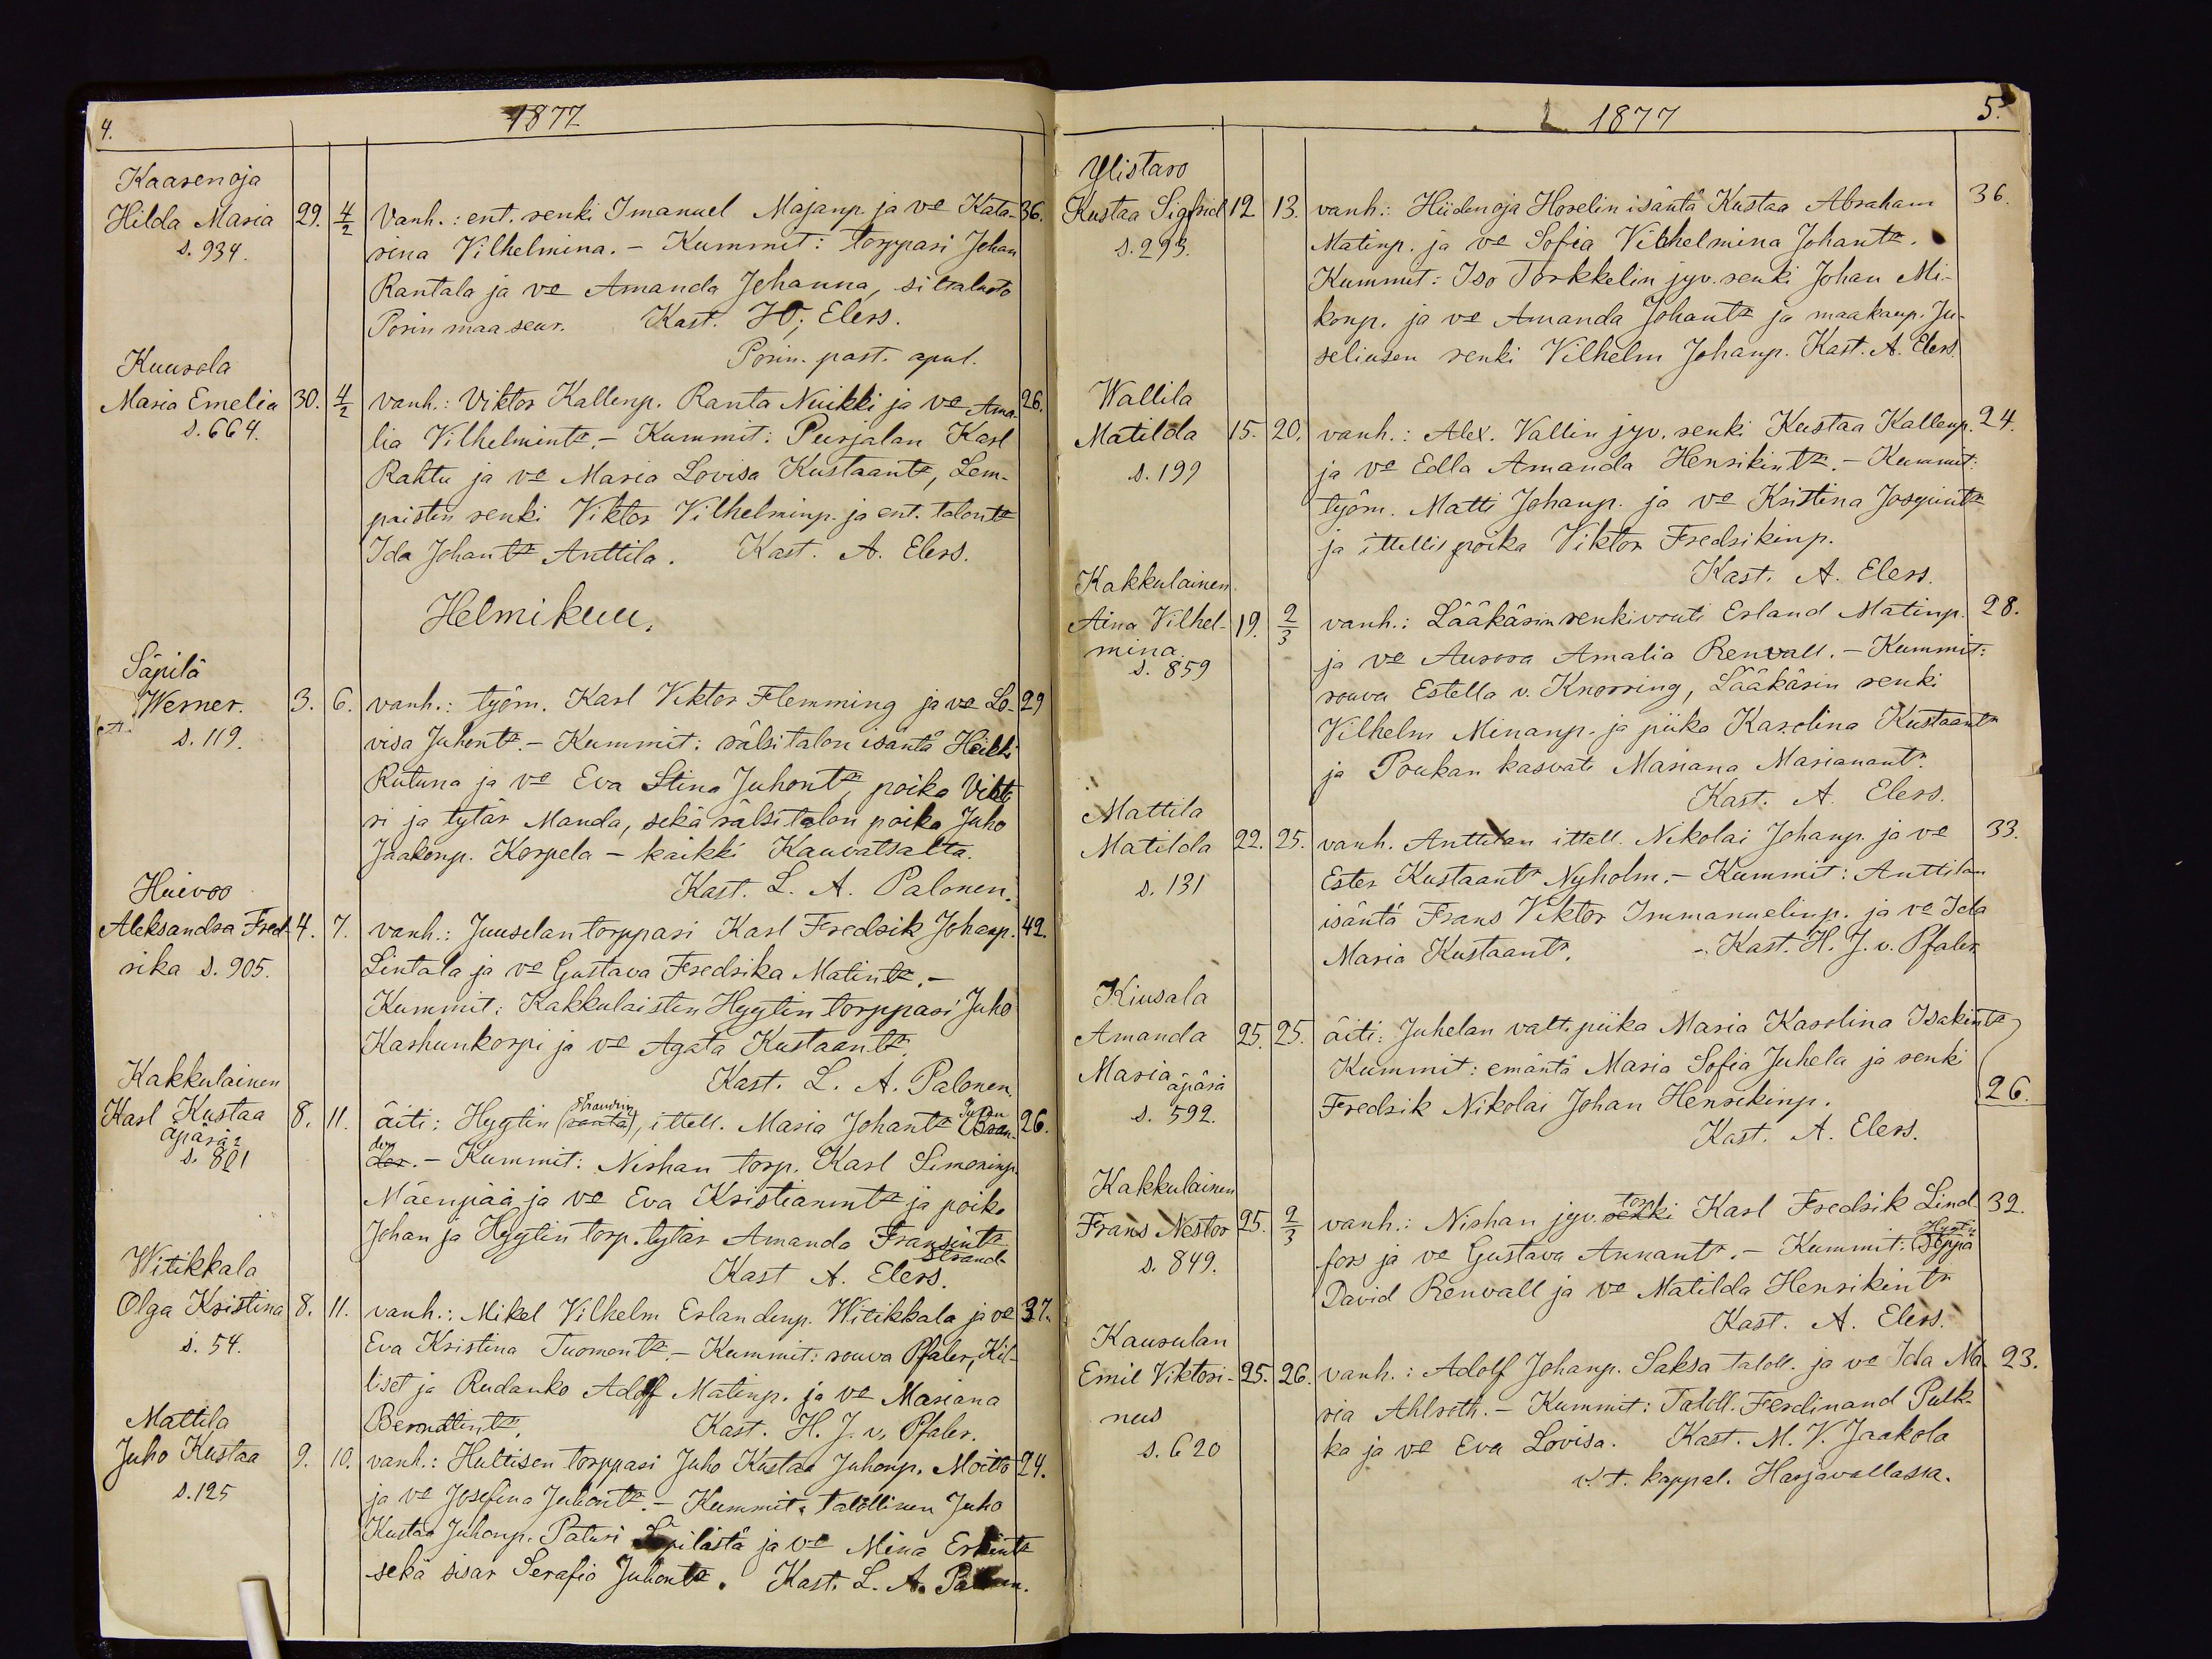 4.
1877
Kaarenoja
Hilda Maria 29. 4/2 Vanh.: ent. renki Imanuel Majanp. ja vo Kata- 36.
s. 934. rina Vilhelmina. - Kummit: torppari Johan
Rantala ja vo Amanda Johanna, siltalasto
Porin maa seur. Kast. Elers.
Porin. past. apul.
Kuurola
Maria Emelia 30. 4/2 vanh.: Viktor Kallenp. Ranta Nuikki ja vo Ama- 26.
s. 664. lia Vilhelmintr. - Kummit: Peurjalan Karl
Rahtu ja vo Maria Lovisa Kustaantr, Lem-
paisten renki Viktor Vilhelminp. ja ent. talontr
Ida Johantr Anttila. Kast. A. Elers.
Helmikuu.
Säpilä
Werner. 3. 6. vanh.: työm. Karl Viktor Flemming ja vo Lo- 29
s. 119. visa Juhontr. - Kummit: rälsitalon isäntä Heikki
Rutuna ja vo Eva Stina Juhontr, poika Vikto
ri ja tytär Manda, sekä rälsitalon poika Juho
Jaakonp. Korpela - kaikki Kauvatsalta.
Kast. L. A. Palonen.
Huivoo
Aleksandra Fred- 4. 7. vanh.: Juuselan torppari Karl Fredrik Johanp. 42.
rika s. 905. Lintala ja vo Gustava Fredrika Matintr. -
Kummit: Kakkulaisten Hyytin torppari Juho
Karhunkorpi ja vo Agata Kustaantr.
Kast. L. A. Palonen.
Kakkulainen
Karl Kustaa 8. 11. äiti: Hyytin (ranta) Strandin, ittell. Maria Johantr Bran- 26.
äpärä
s. 801 der. - Kummit: Nirhan torp. Karl Simoninp.
Mäenpää ja vo Eva Kristianintr ja poika
Johan ja Hyytin torp. tytär Amanda Fransintr
Strand
Kast A. Elers.
Witikkala
Olga Kristina 8. 11. vanh.: Mikel Vilhelm Erlandinp. Witikkala ja vo 37.
s. 54. Eva Kristina Tuomontr. - Kummit: rouva Pfaler, Kil-
liset ja Rudanko Adolf Matinp. ja vo Mariana
Bernattintr. Kast. H. J. v. Pfaler.
Mattila
Juho Kustaa 9. 10. vanh.: Hultisen torppari Juho Kustaa Juhonp. Moitto 24.
s. 125 ja vo Josefina Juhontr. - Kummit: talollinen Juho
Kustaa Juhonp. Paturi Säpilästä ja vo Mina Erkintr
sekä sisar Serafia Juhontr. Kast. L. A. Palonen.
1877
5.
Ylistaro
Kustaa Sigfrid 12 13. vanh.: Hiidenoja Horelin isäntä Kustaa Abraham 36.
s. 293. Matinp. ja vo Sofia Vilhelmina Johantr.
Kummit: Iso Torkkelin jyv. renki Johan Mi-
konp. ja vo Amanda Johantr ja maakaup. Ju-
seliusen renki Vilhelm Johanp. Kast. A. Elers.
Wallila
Matilda 15. 20. vanh.: Alex. Vallin jyv. renki Kustaa Kallenp. 24.
s. 199 ja vo Edla Amanda Henrikintr. - Kummit:
työm. Matti Johanp. ja vo Kristina Josepintr
ja ittellis poika Viktor Fredrikinp.
Kast. A. Elers.
Kakkulainen
Aina Vilhel- 19. 2/3 vanh.: Lääkärin renkivouti Erland Matinp. 28.
mina ja vo Aurora Amalia Renvall. - Kummit:
s. 859 rouva Estella v. Knorring, Lääkärin renki
Vilhelm Minanp. ja piika Karolina Kustaantr
ja Poukan kasvati Mariana Marianantr.
Kast. A. Elers.
Mattila
Matilda 22. 25. vanh. Anttilan ittell. Nikolai Johanp. ja vo 33.
s. 131 Ester Kustaantr Nyholm. - Kummit: Anttilan
isäntä Frans Viktor Immanuelinp. ja vo Ida
Maria Kustaantr. - Kast. H. J. v. Pfaler
Kiusala
Amanda 25. 25. äiti: Juhelan valt. piika Maria Karolina Isakintr
Maria äpärä Kummit: emäntä Maria Sofia Juhela ja renki
s. 592. Fredrik Nikolai Johan Henrikinp. 26.
Kast. A. Elers.
Kakkulainen
Frans Nestor 25. 2/3 vanh.: Nirhan jyv. renki Karl Fredrik Lind- 32.
s. 849. fors ja vo Gustava Annantr. - Kummit: Hyytin Seppä
David Renvall ja vo Matilda Henrikintr
Kast. A. Elers.
Kaurulan
Emil Viktori- 25. 26. vanh.: Adolf Johanp. Saksa taloll. ja vo Ida Ma- 23.
nus ria Ahlroth. - Kummit: Taloll. Ferdinand Pulk-
s. 620 ka ja vo Eva Lovisa. Kast. M. V. Jaakola
v. t. kappal. Harjavallassa.